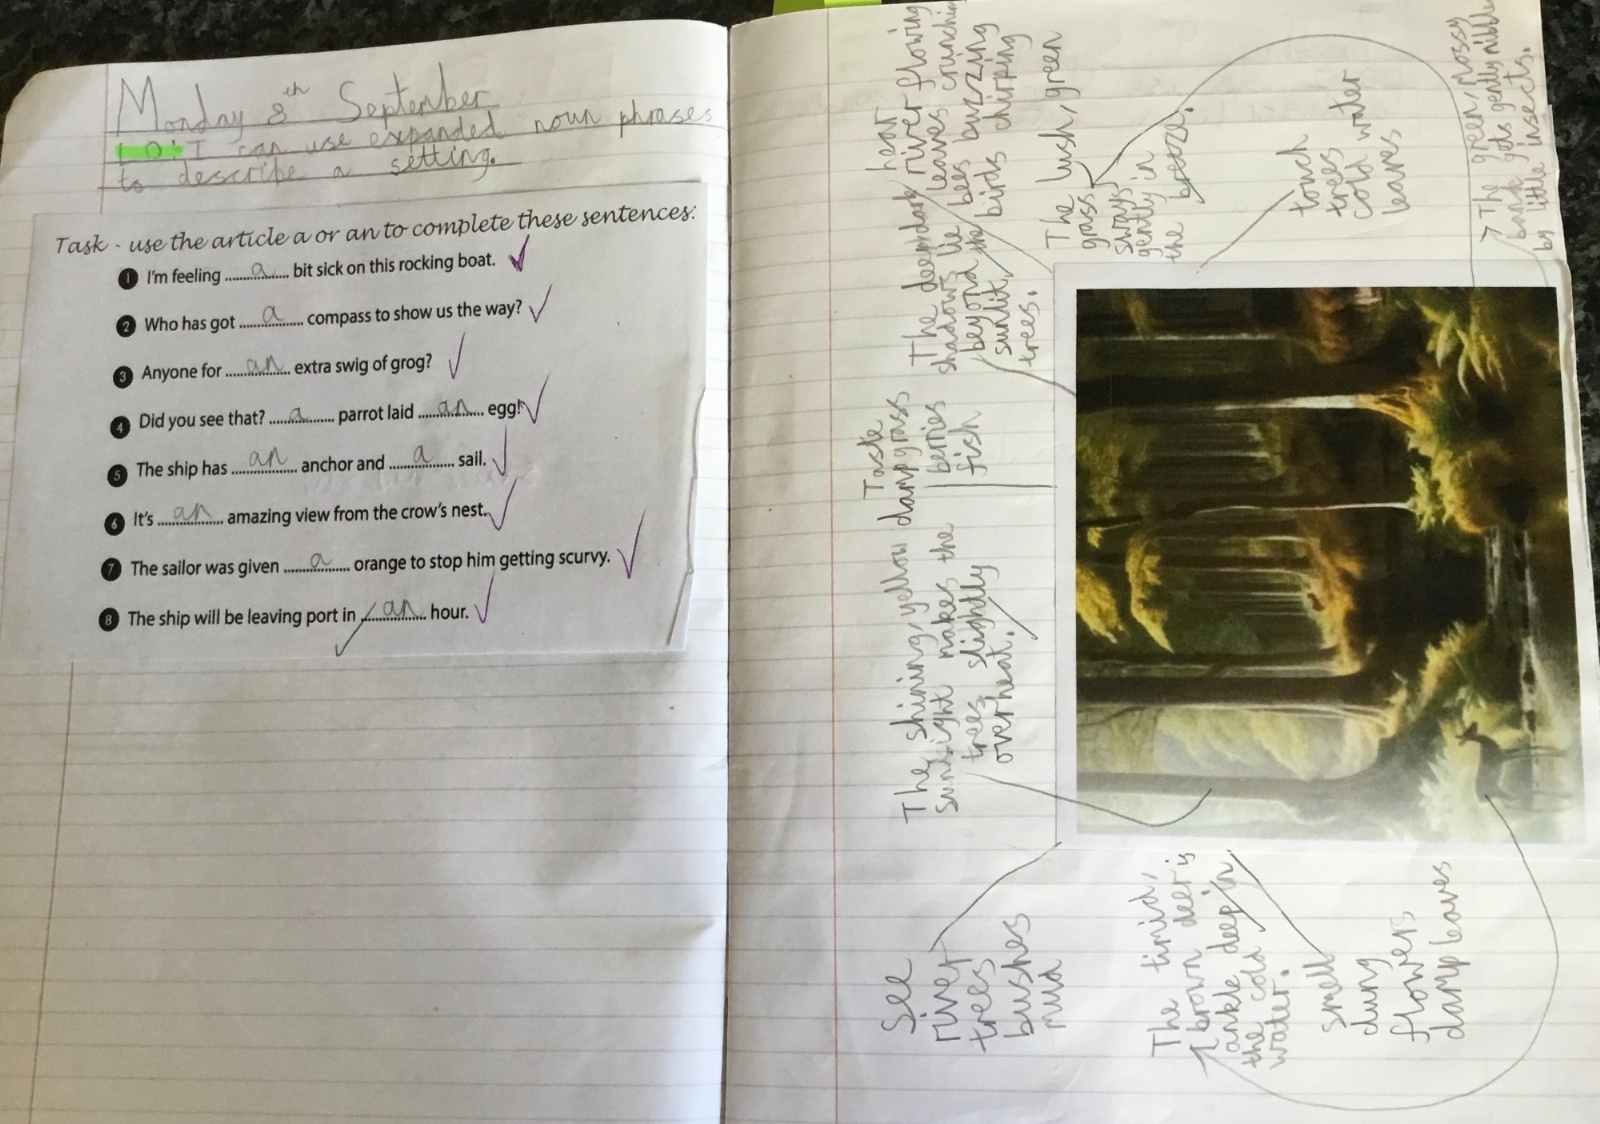 Monday 8th September
LO: I can use expanded noun phrases
to describe a setting.
Task - use the article a or an to complete these sentences:
1 I'm feeling ...a... bit sick on this rocking boat.
2 Who has got ...a... compass to show us the way?
3 Anyone for ...an... extra swig of grog?
4 Did you see that? ...a... parrot laid ...an... egg!
5 The ship has ...an... anchor and ...a... sail.
6 It's ...an... amazing view from the crow's nest.
7 The sailor was given ...a... orange to stop him getting scurvy.
8 The ship will be leaving port in ...an... hour.
See
river
trees
bushes
mud
The shining, yellow
sunlight makes the
trees slightly
overheat.
Taste
damp grass
berries
fish
The deep dark
shadows lie
beyond the
sunlit
trees.
hear
river flowing
leaves crunching
bees buzzing
birds chirping
The lush, green
grass
sways
gently in
the breeze.
touch
trees
cold water
leaves
The green, mossy
bank gets gently nibbled
by little insects.
The timid,
brown deer is
ankle deep in
the cold
water.
smell
dung
flowers
damp leaves